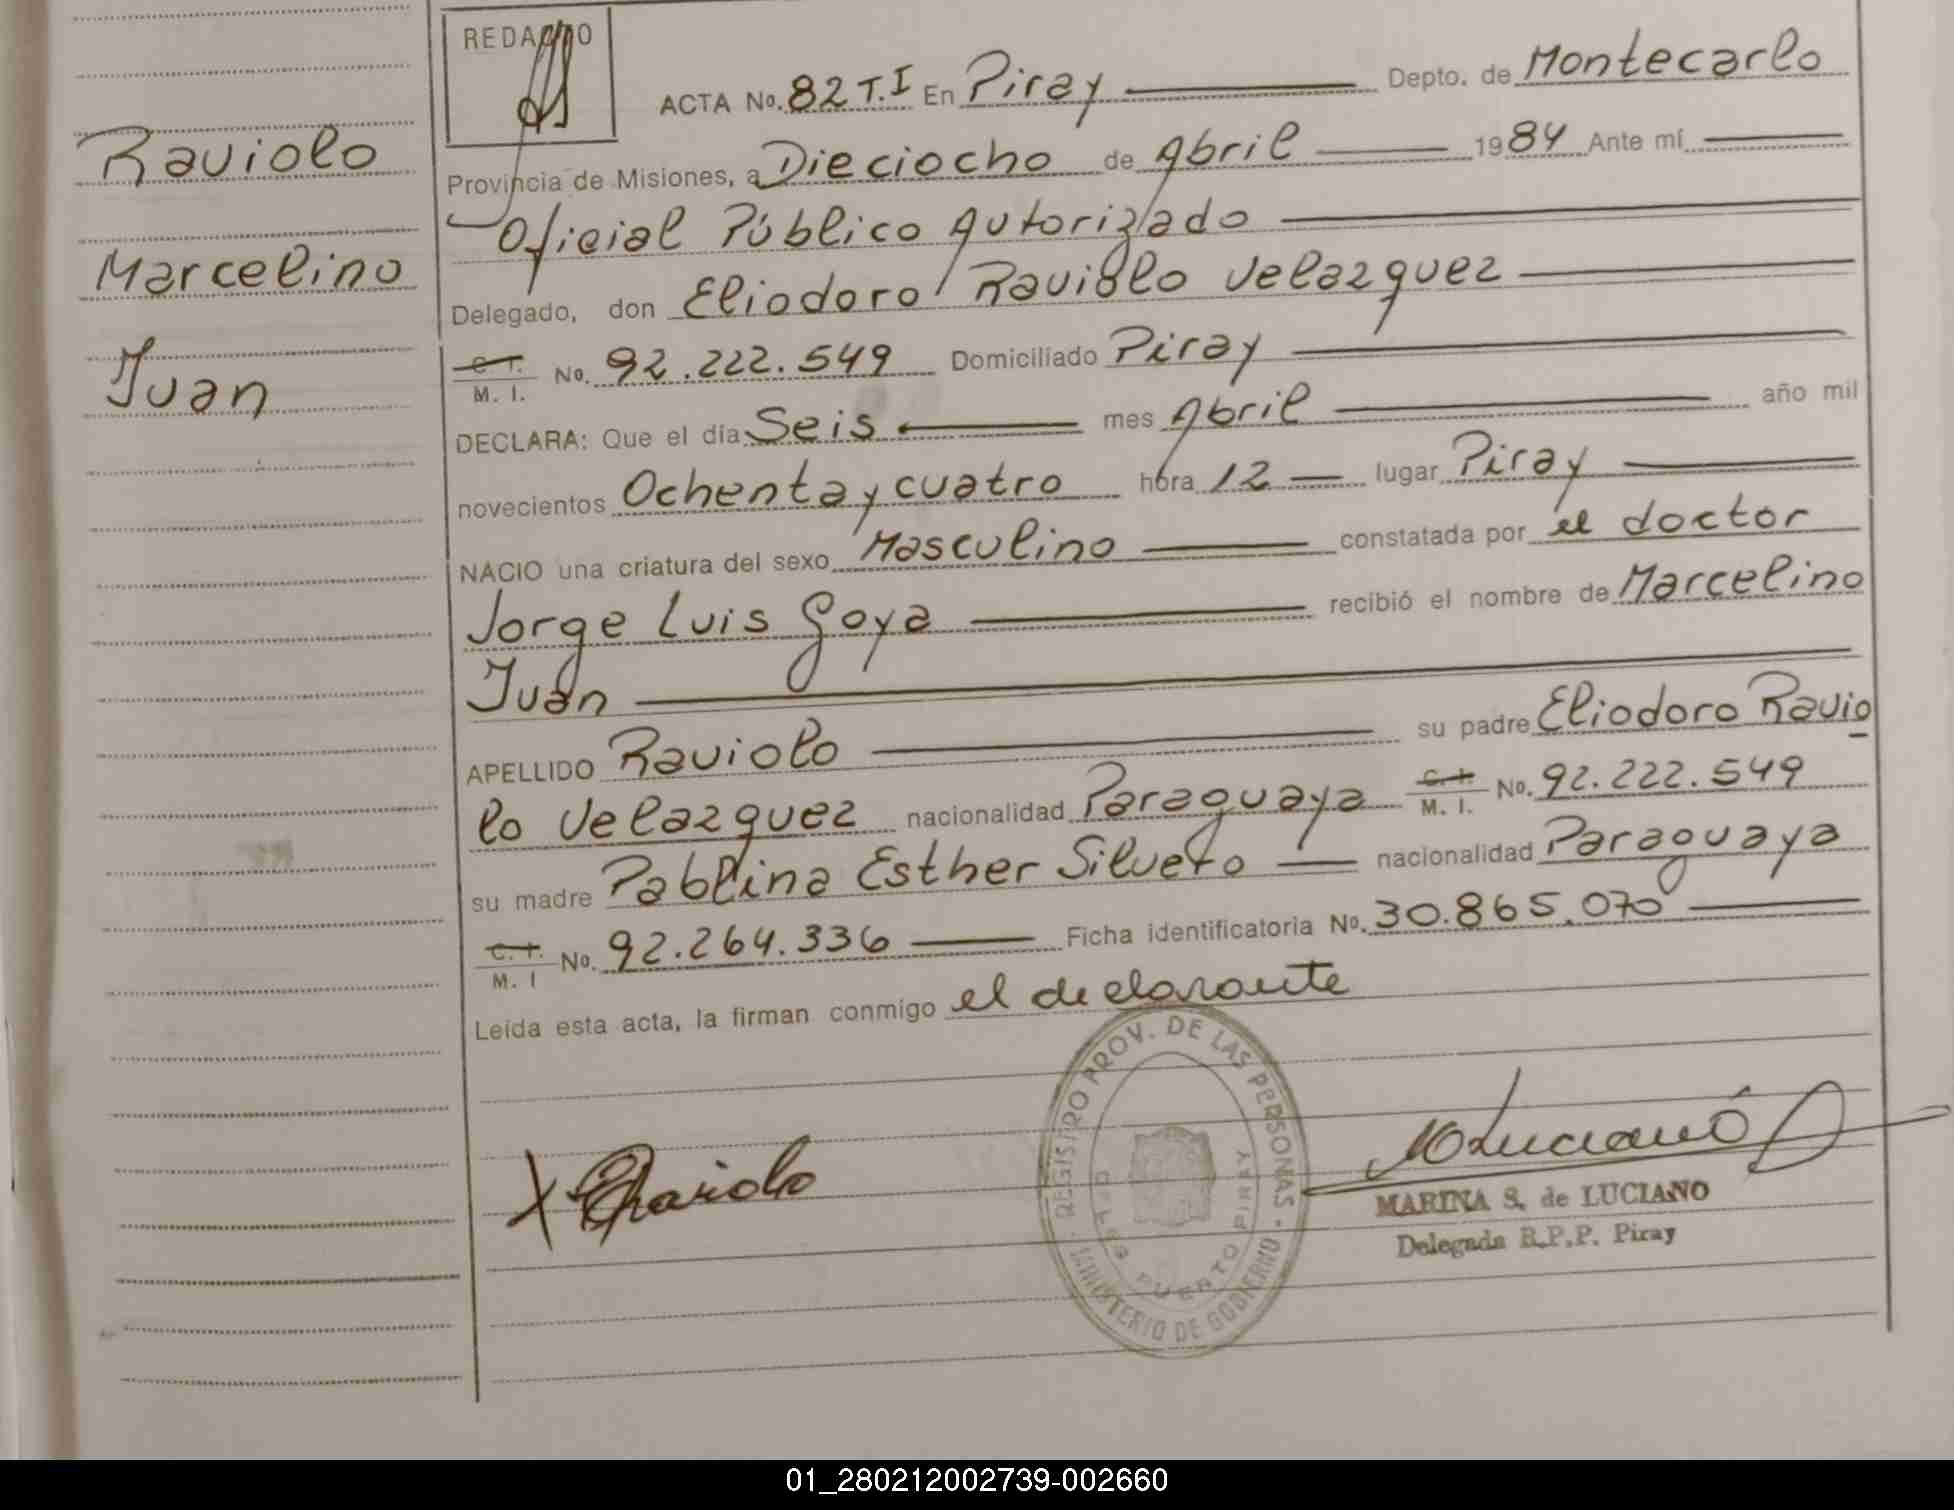 Raviolo
Marcelino
Juan
REDACTO
ACTA No. 82 T.I En Piray Depto. de Montecarlo
Provincia de Misiones, a Dieciocho de Abril 1984 Ante mí
Oficial Público Autorizado
Delegado, don Eliodoro Raviolo Velazquez
C. I. M. I. No. 92.222.549 Domiciliado Piray
DECLARA: Que el día Seis mes Abril año mil
novecientos Ochenta y cuatro hora 12 lugar Piray
NACIO una criatura del sexo Masculino constatada por el doctor
Jorge Luis Goya recibió el nombre de Marcelino
Juan
APELLIDO Raviolo su padre Eliodoro Ravio
lo Velazquez nacionalidad Paraguaya C. I. M. I. No. 92.222.549
su madre Pablina Esther Silvero nacionalidad Paraguaya
C. I. M. I No. 92.264.336 Ficha identificatoria No. 30.865.070
Leída esta acta, la firman conmigo el declarante
REGISTRO PROV. DE LAS PERSONAS
MINISTERIO DE GOBIERNO
DELEG PUERTO PIRAY
X Raviolo
MARINA S. de LUCIANO
Delegada R.P.P. Piray
01_280212002739-002660